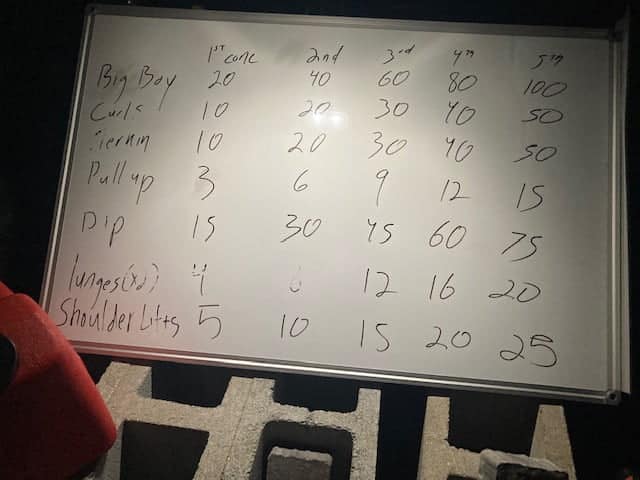 1st conc 2nd 3rd 4th 5th
Big Boy 20 40 60 80 100
Curls 10 20 30 40 50
10 20 30 40 50
Pull up 3 6 9 12 15
Dip 15 30 45 60 75
lunges(x2) 4 12 16 20
Shoulder Lifts 5 10 15 20 25